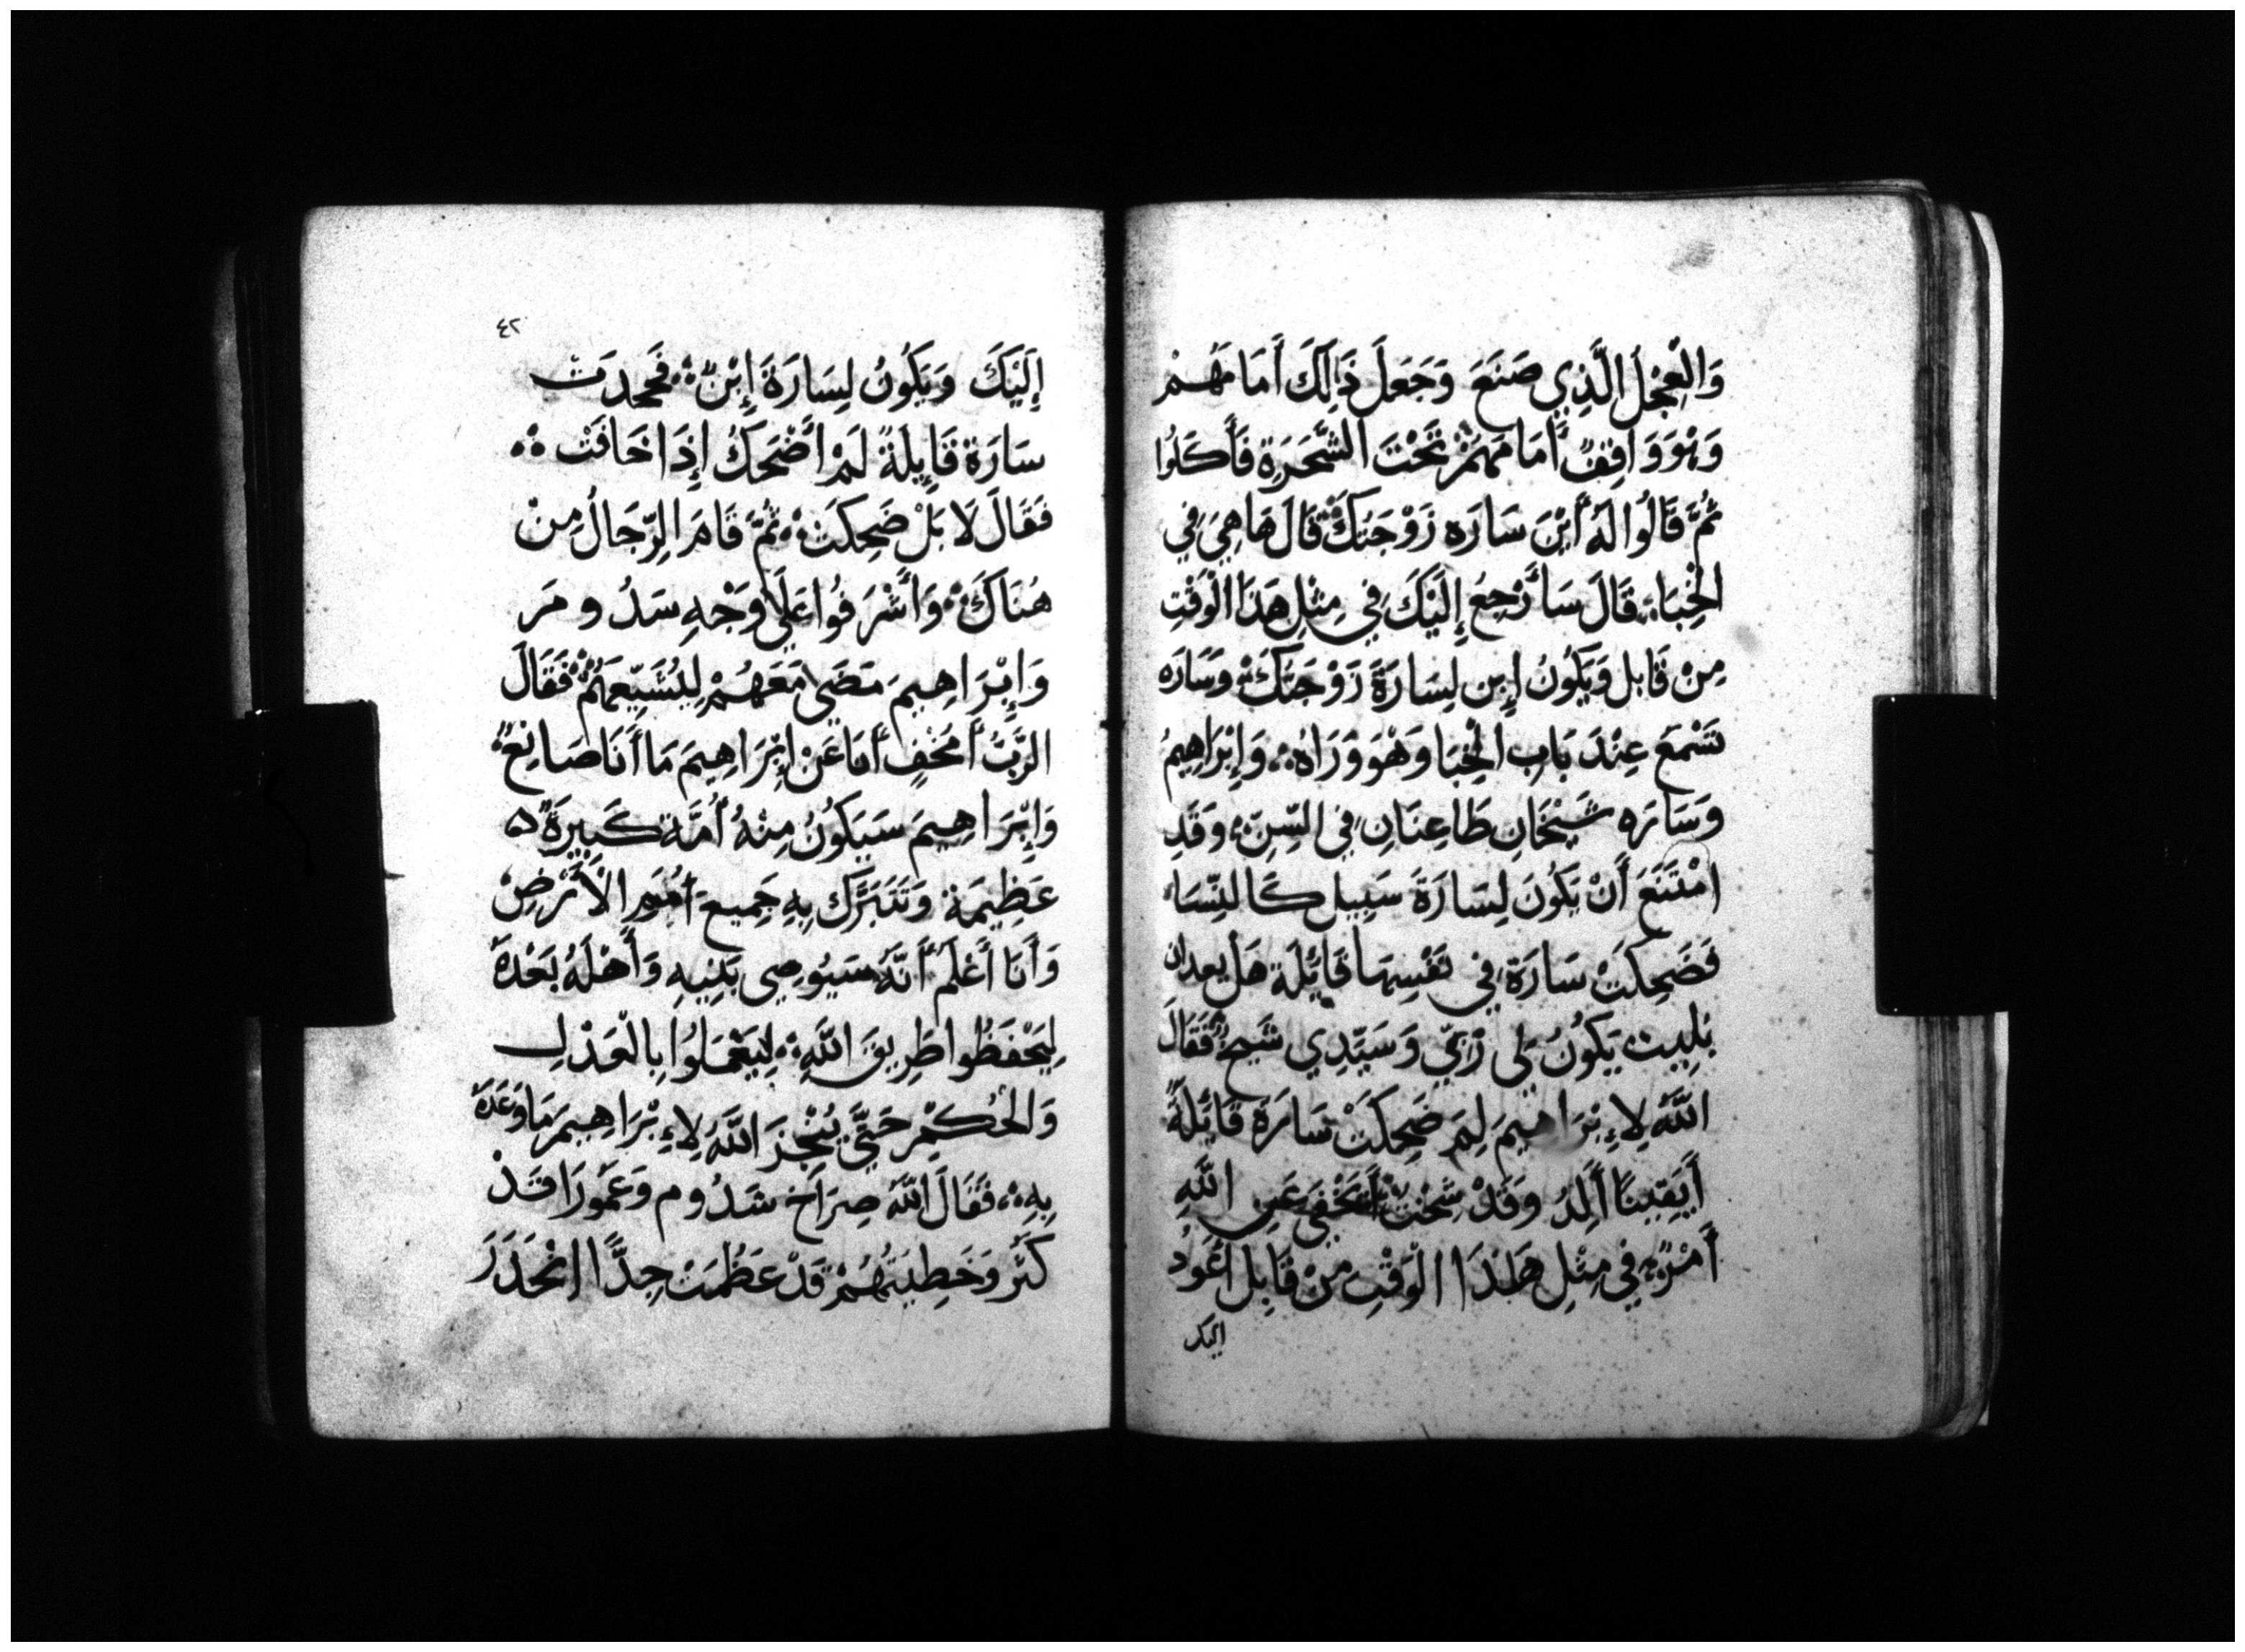 وَالْعِجْلُ الَّذِي صَنَعَ وَجَعَلَ ذَالِكَ أَمَامَهُمْ
وَهْوَ وَاقِفٌ أَمَامَهُمْ تَحْتَ الشَّجَرَةِ فَأَكَلُوا
ثُمَّ قَالُوا لَهُ أَيْنَ سَارَه زَوْجَتُكَ قَالَ هَا هِيَ فِي
الْخِبَاءِ قَالَ سَأَرْجِعُ إِلَيْكَ فِي مِثْلِ هَذَا الْوَقْتِ
مِنْ قَابِل وَيَكُونُ إِبْن لِسَارَةَ زَوْجَتِكَ وَسَارَه
تَسْمَع عِنْدَ بَابِ الْخِبَا وَهْوَ وَرَاهُ وَإِبْرَاهِيمُ
وَسَارَه شَيْخَانِ طَاعِنَانِ فِي السِّنِّ وَقَدِ
امْتَنَعَ أَنْ يَكُونَ لِسَارَةَ سَبِيل كَالنِّسَاء
فَضَحِكَتْ سَارَة فِي نَفْسِهَا قَائِلَة هَل بعدان
بَلِيت يَكُونُ لِي زيّ وَسَيِّدِي شَيخٌ فَقَالَ
اللَّهُ لِإِبْرَاهِيمَ لِمَ ضَحِكَتْ سَارَةُ قَائِلَةً
أَيَقِينًا أَلِدُ وَقَدْ شِخْتُ أَيَخْفَى عَنِ اللَّهِ
أَمْرٌ فِي مِثْلِ هَذَا الْوَقْتِ مِنْ قَابِل أَعُودُ
اليك
٤٢
إِلَيْكَ وَيَكُونُ لِسَارَةَ إِبْنٌ فَجَحِدَت
سَارَة قَايِلَةً لَمْ أَضْحَكُ إِذَا خَافَتْ
فَقَالَ لَا بَلْ ضَحِكَتْ ثُمَّ قَامَ الرِّجَالُ مِنْ
هُنَاكَ وَأَشْرَفُوا عَلَى وَجْهِ سَدُومَر
وَإِبْرَاهِيمَ مَضَى مَعَهُمْ لِيُشَيِّعَهُمْ فَقَالَ
الرَّبُّ أَمُخْفٍ أَنَا عَنْ إِبْرَاهِيمَ مَا أَنَا صَانِعٌ
وَإِبْرَاهِيمَ سَيَكُونُ مِنْهُ أُمَّة كَبِيرَةً
عَظِيمَة وَتَتَبَرَّك بِهِ جَمِيعَ أُمَمِ الْأَرْضِ
وَأَنَا أَعْلَم أَنَّهُ سَيُوصِي بَنِيهِ وَأَهْلَهُ بَعْدَهُ
لِيَحْفَظُوا طَرِيقَ اللَّهِ لِيَعْمَلُوا بِالْعَدْلِ
وَالْحُكْمِ حَتَّى يُنْجِزَ اللَّهُ لِإِبْرَاهِيمَ مَا وَعَدَهُ
بِهِ فَقَالَ اللَّهُ صِرَاخ سَدُوم وَعَمُورَا قَدْ
كَثُر وَخَطِيَتَهُمْ قَدْ عَظُمَتْ جِدًّا انْحَدَرَ